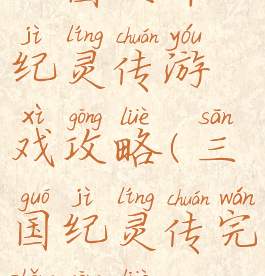 jì líng chuán yóu
纪灵传游
xì gōng lüè sān
戏攻略(三
guó jì líng chuán wán
国纪灵传完